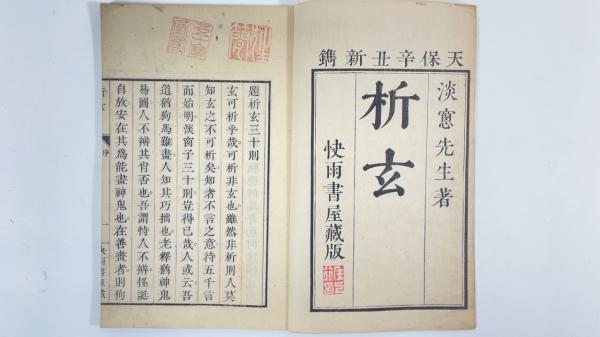 天保辛丑新鐫
淡窻先生著
析玄
快雨書屋藏版
題析玄三十則
玄可析乎哉可析非玄也雖然非析則人莫
知玄之不可析矣知者不言之意待五千言
而始明淡窗子三十則豈得已哉人或云吾
道猶狗馬雖畫人知其巧拙也老釋猶神鬼
易圖人不辨其肖否也吾謂恃人不辨怪誕
自放安在其為能畫神鬼也在善畫者則狗
序